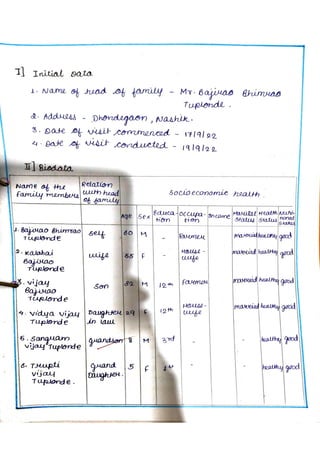 I] Initial Data
1. Name of head of family - Mr. Bajirao Bhimrao
Tuplonde.
2. Address - Dhondegaon, Nashik.
3. Date of visit commenced - 17/9/22
4. Date of visit conducted - 19/9/22
II] Biodata
Name of the family members | Relation with head of family | Socioeconomic health
Age | Sex | Education | Occupation | Income | Marital status | Health status | Nutritional status
1. Bajirao Bhimrao Tuplonde | Self | 60 | M | - | Farmer | - | married | healthy | good
2. Bajirao Tuplonde | wife | 55 | F | - | House-wife | - | married | healthy | good
3. Vijay Bajirao Tuplonde | Son | 32 | M | 12th | Farmer | married | healthy | good
4. Vidya Vijay Tuplonde | Daughter in law | 29 | F | 12th | House-wife | married | healthy | good
5. Sangram Vijay Tuplonde | grandson | 8 | M | 3rd | - | - | - | healthy | good
6. Trupti Vijay Tuplonde. | Grand Daughter. | 5 | F | - | - | - | healthy | good